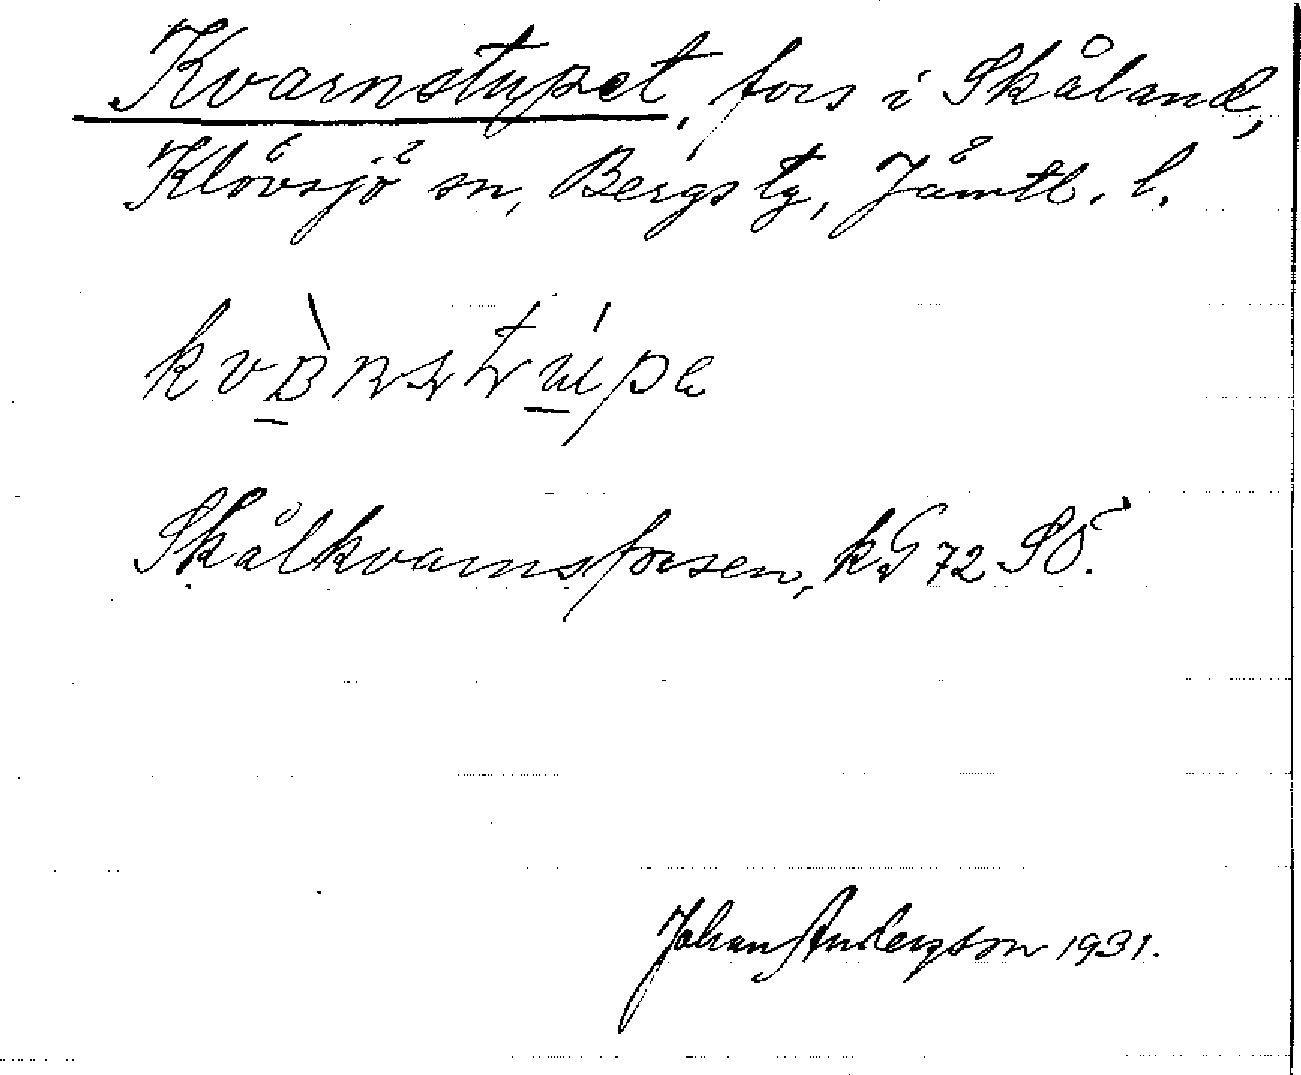 Kvarnstupet, fors i Skåland,
Klövsjö sn, Bergs tg, Jämtl. l.
Skålkvarnsforsen, kG 72 SÖ.
Johan Anderzson 1931.